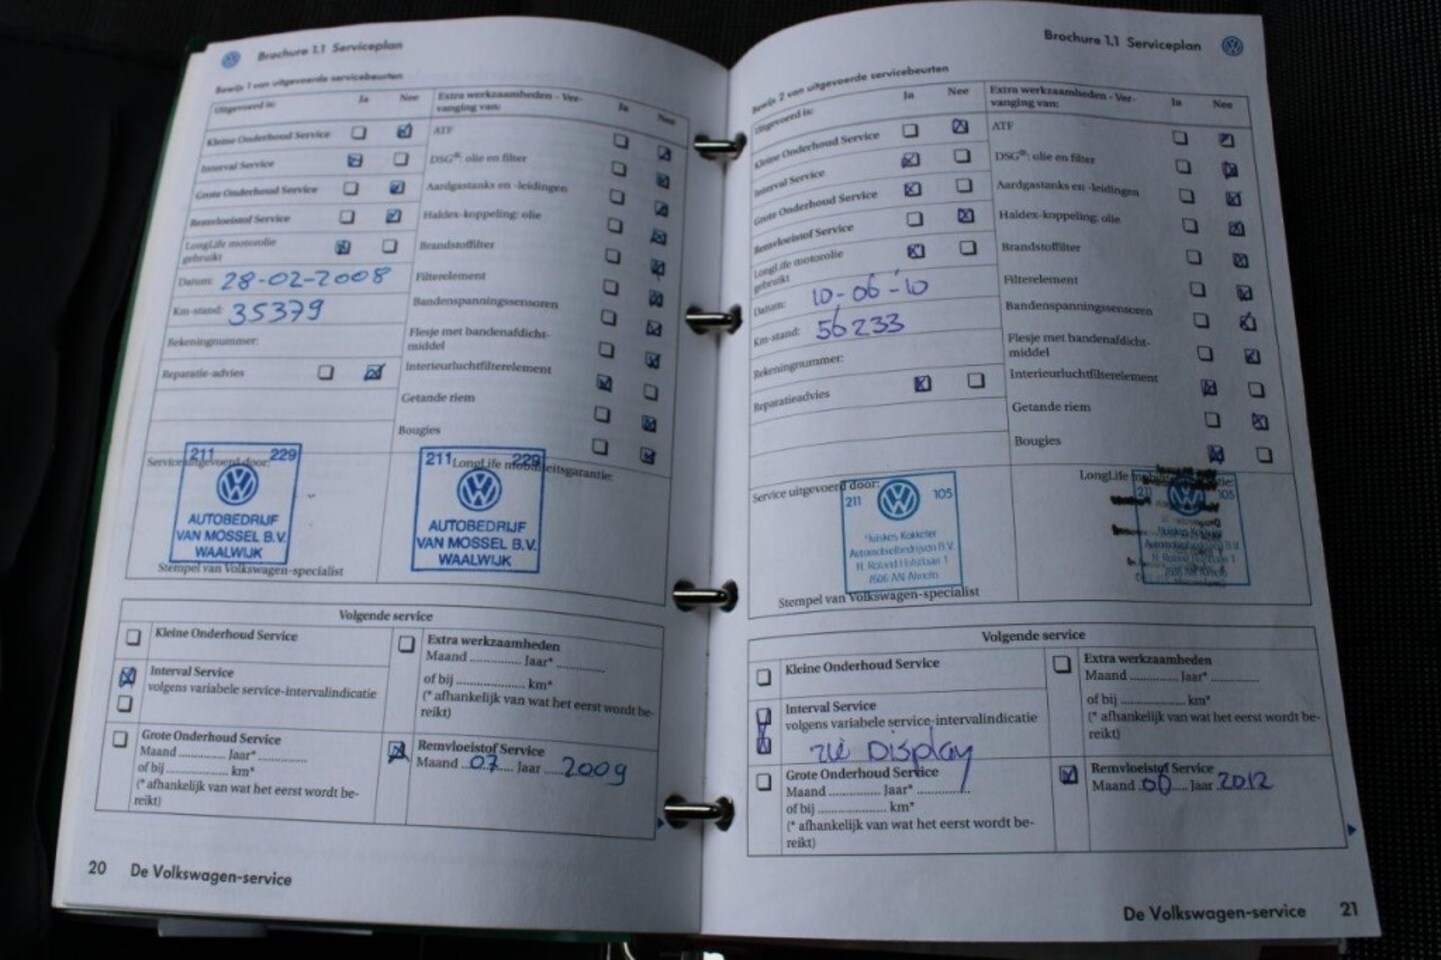 Brochure 1.1 Serviceplan
Bewijs 1 van uitgevoerde servicebeurten
Uitgevoerd is: Ja Nee
Kleine Onderhoud Service
Interval Service
Grote Onderhoud Service
Remvloeistof Service
LongLife motorolie
gebruikt
Datum: 28-02-2008
Km-stand: 35379
Rekeningnummer:
Reparatie-advies
Extra werkzaamheden - Ver-
vanging van: Ja Nee
ATF
DSG®: olie en filter
Aardgastanks en -leidingen
Haldex-koppeling: olie
Brandstoffilter
Filterelement
Bandenspanningssensoren
Flesje met bandenafdicht-
middel
Interieurluchtfilterelement
Getande riem
Bougies
Service uitgevoerd door:
211 229
AUTOBEDRIJF
VAN MOSSEL B.V.
WAALWIJK
Stempel van Volkswagen-specialist
LongLife mobiliteitsgarantie:
211 229
AUTOBEDRIJF
VAN MOSSEL B.V.
WAALWIJK
Volgende service
Kleine Onderhoud Service
Interval Service
volgens variabele service-intervalindicatie
Grote Onderhoud Service
Maand ............. Jaar* .............
of bij ................. km*
(* afhankelijk van wat het eerst wordt be-
reikt)
Extra werkzaamheden
Maand ............. Jaar* .............
of bij ................. km*
(* afhankelijk van wat het eerst wordt be-
reikt)
Remvloeistof Service
Maand 07 Jaar 2009
20 De Volkswagen-service
Brochure 1.1 Serviceplan
Bewijs 2 van uitgevoerde servicebeurten
Uitgevoerd is: Ja Nee
Kleine Onderhoud Service
Interval Service
Grote Onderhoud Service
Remvloeistof Service
LongLife motorolie
gebruikt
Datum: 10-06-'10
Km-stand: 56233
Rekeningnummer:
Reparatieadvies
Extra werkzaamheden - Ver-
vanging van: Ja Nee
ATF
DSG®: olie en filter
Aardgastanks en -leidingen
Haldex-koppeling: olie
Brandstoffilter
Filterelement
Bandenspanningssensoren
Flesje met bandenafdicht-
middel
Interieurluchtfilterelement
Getande riem
Bougies
Service uitgevoerd door:
211 105
Huiskes Kokkeler
Automobielbedrijven B.V.
H. Roland Holstlaan 1
7606 AN Almelo
Stempel van Volkswagen-specialist
LongLife
211 105
Huiskes Kokkeler
Automobielbedrijven B.V.
Volgende service
Kleine Onderhoud Service
Interval Service
volgens variabele service-intervalindicatie
zie Display
Grote Onderhoud Service
Maand ............. Jaar* .............
of bij ................. km*
(* afhankelijk van wat het eerst wordt be-
reikt)
Extra werkzaamheden
Maand ............. Jaar* .............
of bij ................. km*
(* afhankelijk van wat het eerst wordt be-
reikt)
Remvloeistof Service
Maand 06 Jaar 2012
De Volkswagen-service 21